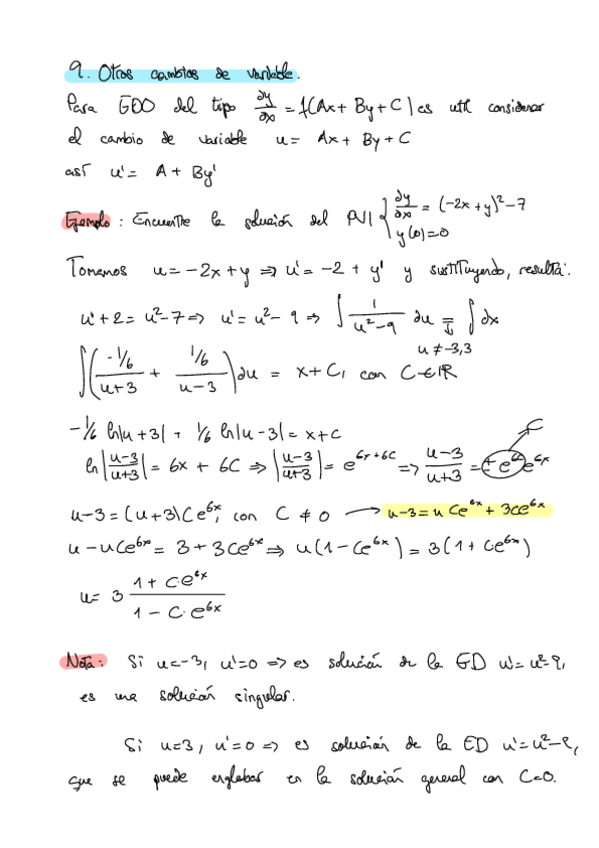 9. Otros cambios de variable.
Para EDO del tipo ∂y/∂x = f(Ax + By + C) es util considerar
el cambio de variable u = Ax + By + C
así u' = A + By'
Ejemplo: Encuentre la solución del PVI { ∂y/∂x = (-2x + y)² - 7
y(0) = 0
Tomamos u = -2x + y ⇒ u' = -2 + y' y sustituyendo, resulta:
u' + 2 = u² - 7 ⇒ u' = u² - 9 ⇒ ∫ 1/(u² - 9) du = ∫ dx
u ≠ -3, 3
∫ ( (-1/6)/(u+3) + (1/6)/(u-3) ) du = x + C, con C ∈ ℝ
-1/6 ln|u+3| + 1/6 ln|u-3| = x + c
C
ln|(u-3)/(u+3)| = 6x + 6C ⇒ |(u-3)/(u+3)| = e^(6x+6C) ⇒ (u-3)/(u+3) = ±e^(6C) e^(6x)
u - 3 = (u+3) C e^(6x), con C ≠ 0 → u - 3 = u C e^(6x) + 3 C e^(6x)
u - u C e^(6x) = 3 + 3 C e^(6x) ⇒ u(1 - C e^(6x)) = 3(1 + C e^(6x))
u = 3 (1 + C e^(6x))/(1 - C · e^(6x))
Nota: Si u = -3, u' = 0 ⇒ es solución de la ED u' = u² - 9,
es una solución singular.
Si u = 3, u' = 0 ⇒ es solución de la ED u' = u² - 9,
que se puede englobar en la solución general con C = 0.